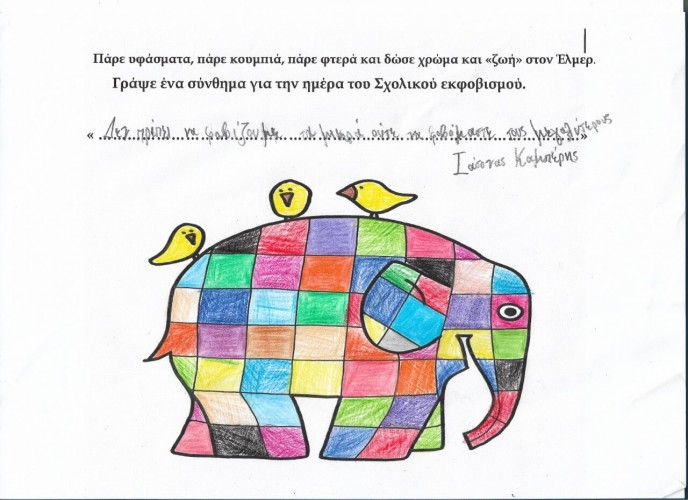 Πάρε υφάσματα, πάρε κουμπιά, πάρε φτερά και δώσε χρώμα και «ζωή» στον Έλμερ.
Γράψε ένα σύνθημα για την ημέρα του Σχολικού εκφοβισμού.
« Δεν πρέπει να φοβίζουμε τα μικρά ούτε να φοβόμαστε τους μεγαλύτερους »
Ιάσονας Καμπέρης